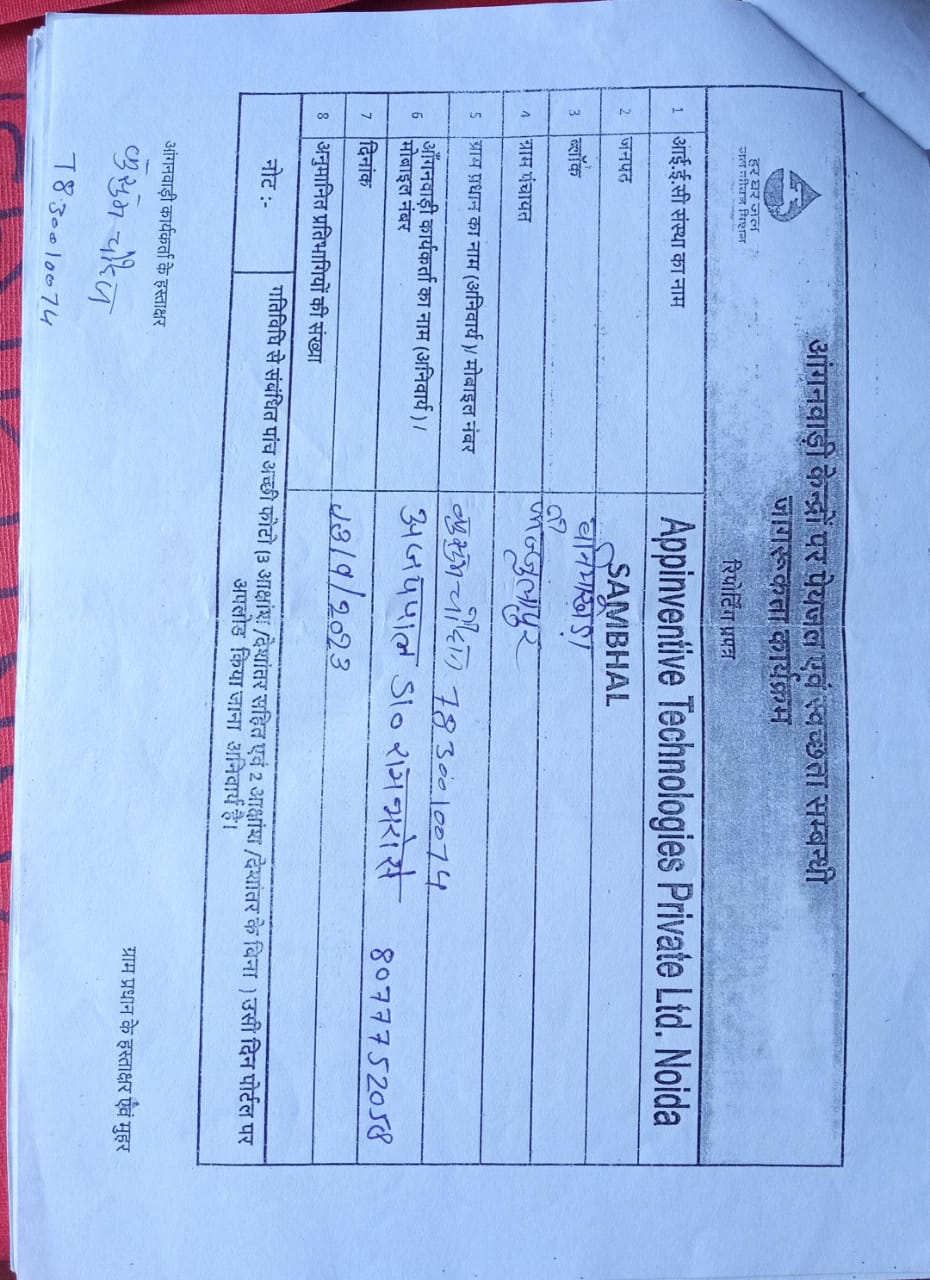 हर घर जल
जल जीवन मिशन
आंगनवाड़ी केन्द्रों पर पेयजल एवं स्वच्छता सम्बन्धी
जागरूकता कार्यक्रम
रिपोर्टिंग प्रपत्र
1 आई.ई.सी संस्था का नाम Appinventive Technologies Private Ltd. Noida
2 जनपद SAMBHAL
3 ब्लॉक
4 ग्राम पंचायत
5 ग्राम प्रधान का नाम (अनिवार्य)/ मोबाइल नंबर 7830010074
6 आँगनवाड़ी कार्यकर्ता का नाम (अनिवार्य) /
मोबाइल नंबर अजयपाल S/o रामभरोसे 8077752058
7 दिनांक
8 अनुमानित प्रतिभागियों की संख्या
नोट :- गतिविधि से संबंधित पांच अच्छी फोटो (3 अक्षांश /देशांतर सहित एवं 2 अक्षांश /देशांतर के बिना ) उसी दिन पोर्टल पर
अपलोड किया जाना अनिवार्य है।
आंगनवाड़ी कार्यकर्ता के हस्ताक्षर
ग्राम प्रधान के हस्ताक्षर एवं मुहर